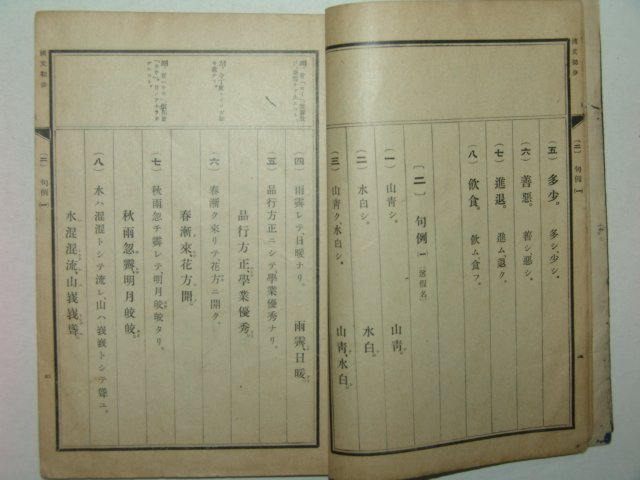 (五) 多少。 多シ、少シ。
(六) 善惡。 善シ惡シ。
(七) 進退。 進ム、退ク。
(八) 飮食。 飮ム、食フ。
〔二〕 句例 (一)
(一) 山靑シ。 山靑。
(二) 水白シ。 水白。
(三) 山靑ク、水白シ。 山靑、水白。
(二) 句例 (一)
(四) 雨霽レテ、日暖ナリ。 雨霽、日暖。
(五) 品行方正ニシテ、學業優秀ナリ。
品行方正、學業優秀。
(六) 春漸ク來リテ花方ニ開ク。
春漸來、花方開。
(七) 秋雨忽チ霽レテ明月皎皎タリ。
秋雨忽霽、明月皎皎。
(八) 水ハ混混トシテ流レ、山ハ嶷嶷トシテ聳ユ。
水混混流、山嶷嶷聳。
(二) 句例 (一)